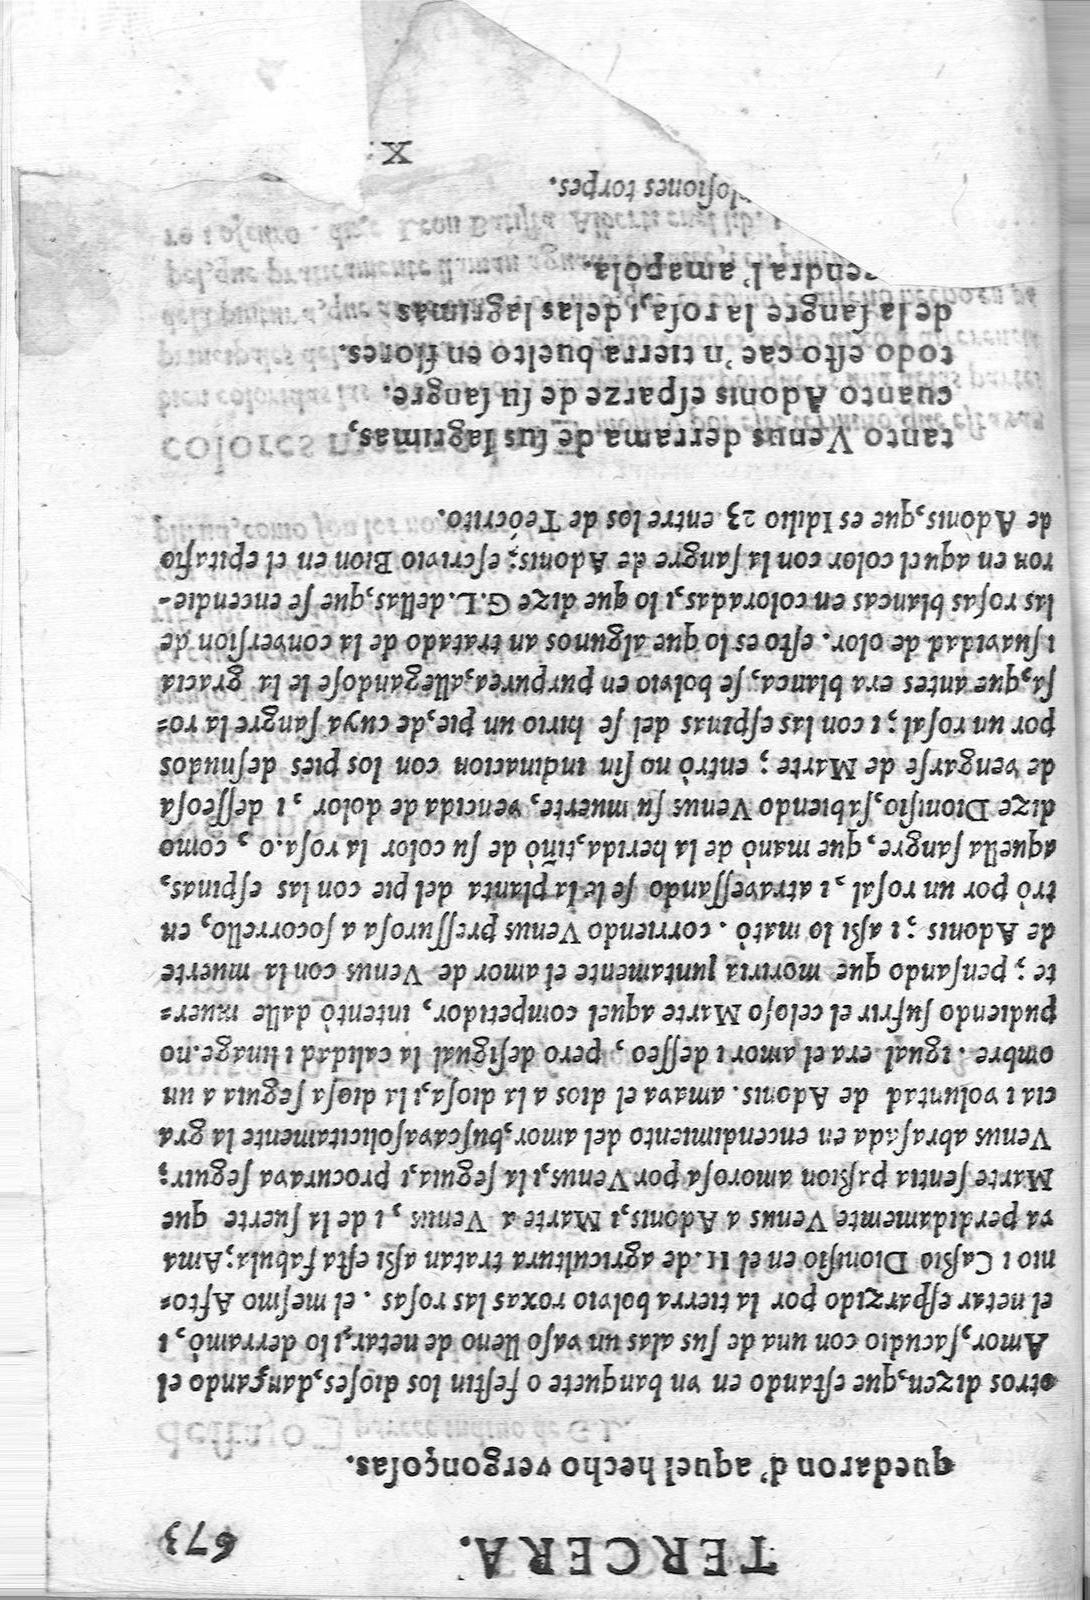 TERCERA. 673
quedaron d'aquel hecho vergonçoſas.
otros dizen, que eſtando en un banquete o feſtin los dioſes, dançando el
Amor, ſacudio con una de ſus alas un vaſo lleno de netar, i lo derramò, i
el netar eſparzido por la tierra bolvio roxas las roſas. el meſmo Aſto=
nio i Caßio Dioniſio en el II. de agricultura tratan aßi eſta fabula; Ama
va perdidamemte Venus a Adonis, i Marte a Venus, i de la ſuerte que
Marte ſentia paßion amoroſa por Venus, i la ſeguia, i procurava ſeguir;
Venus abraſada en encendimiento del amor, buſcava ſolicitamente la gra
cia i voluntad de Adonis. amava el dios a la dioſa, i la dioſa ſeguia a un
ombre. igual era el amor i deſſeo, pero deſigual la calidad i linage. no
pudiendo ſufrir el celoſo Marte aquel competidor, intentò dalle muer=
te; penſando que moriria juntamente el amor de Venus con la muerte
de Adonis; i aßi lo matò. corriendo Venus preſſuroſa a ſocorrello, en
trò por un roſal, i atraveſſando ſe le la planta del pie con las eſpinas,
aquella ſangre, que manò de la herida, tiñò de ſu color la roſa. o, como
dize Dioniſio, ſabiendo Venus ſu muerte, vencida de dolor, i deſſeoſa
de vengarſe de Marte; entrò no ſin indinacion con los pies deſnudos
por un roſal; i con las eſpinas del ſe hirio un pie, de cuya ſangre la ro=
ſa, que antes era blanca, ſe bolvio en purpurea, allegandoſe le la gracia
i ſuavidad de olor. eſto es lo que algunos an tratado de la converſion de
las roſas blancas en coloradas, i lo que dize G.L. dellas, que ſe encendie-
ron en aquel color con la ſangre de Adonis; eſcrivio Bion en el epitafio
de Adonis, que es Idilio 23 entre los de Teócrito.
tanto Venus derrama de ſus lagrimas,
cuanto Adonis eſparze de ſu ſangre.
todo eſto cae'n tierra buelto en flores.
de la ſangre la roſa, i de las lagrimas
l'amapola.
torpes.
X